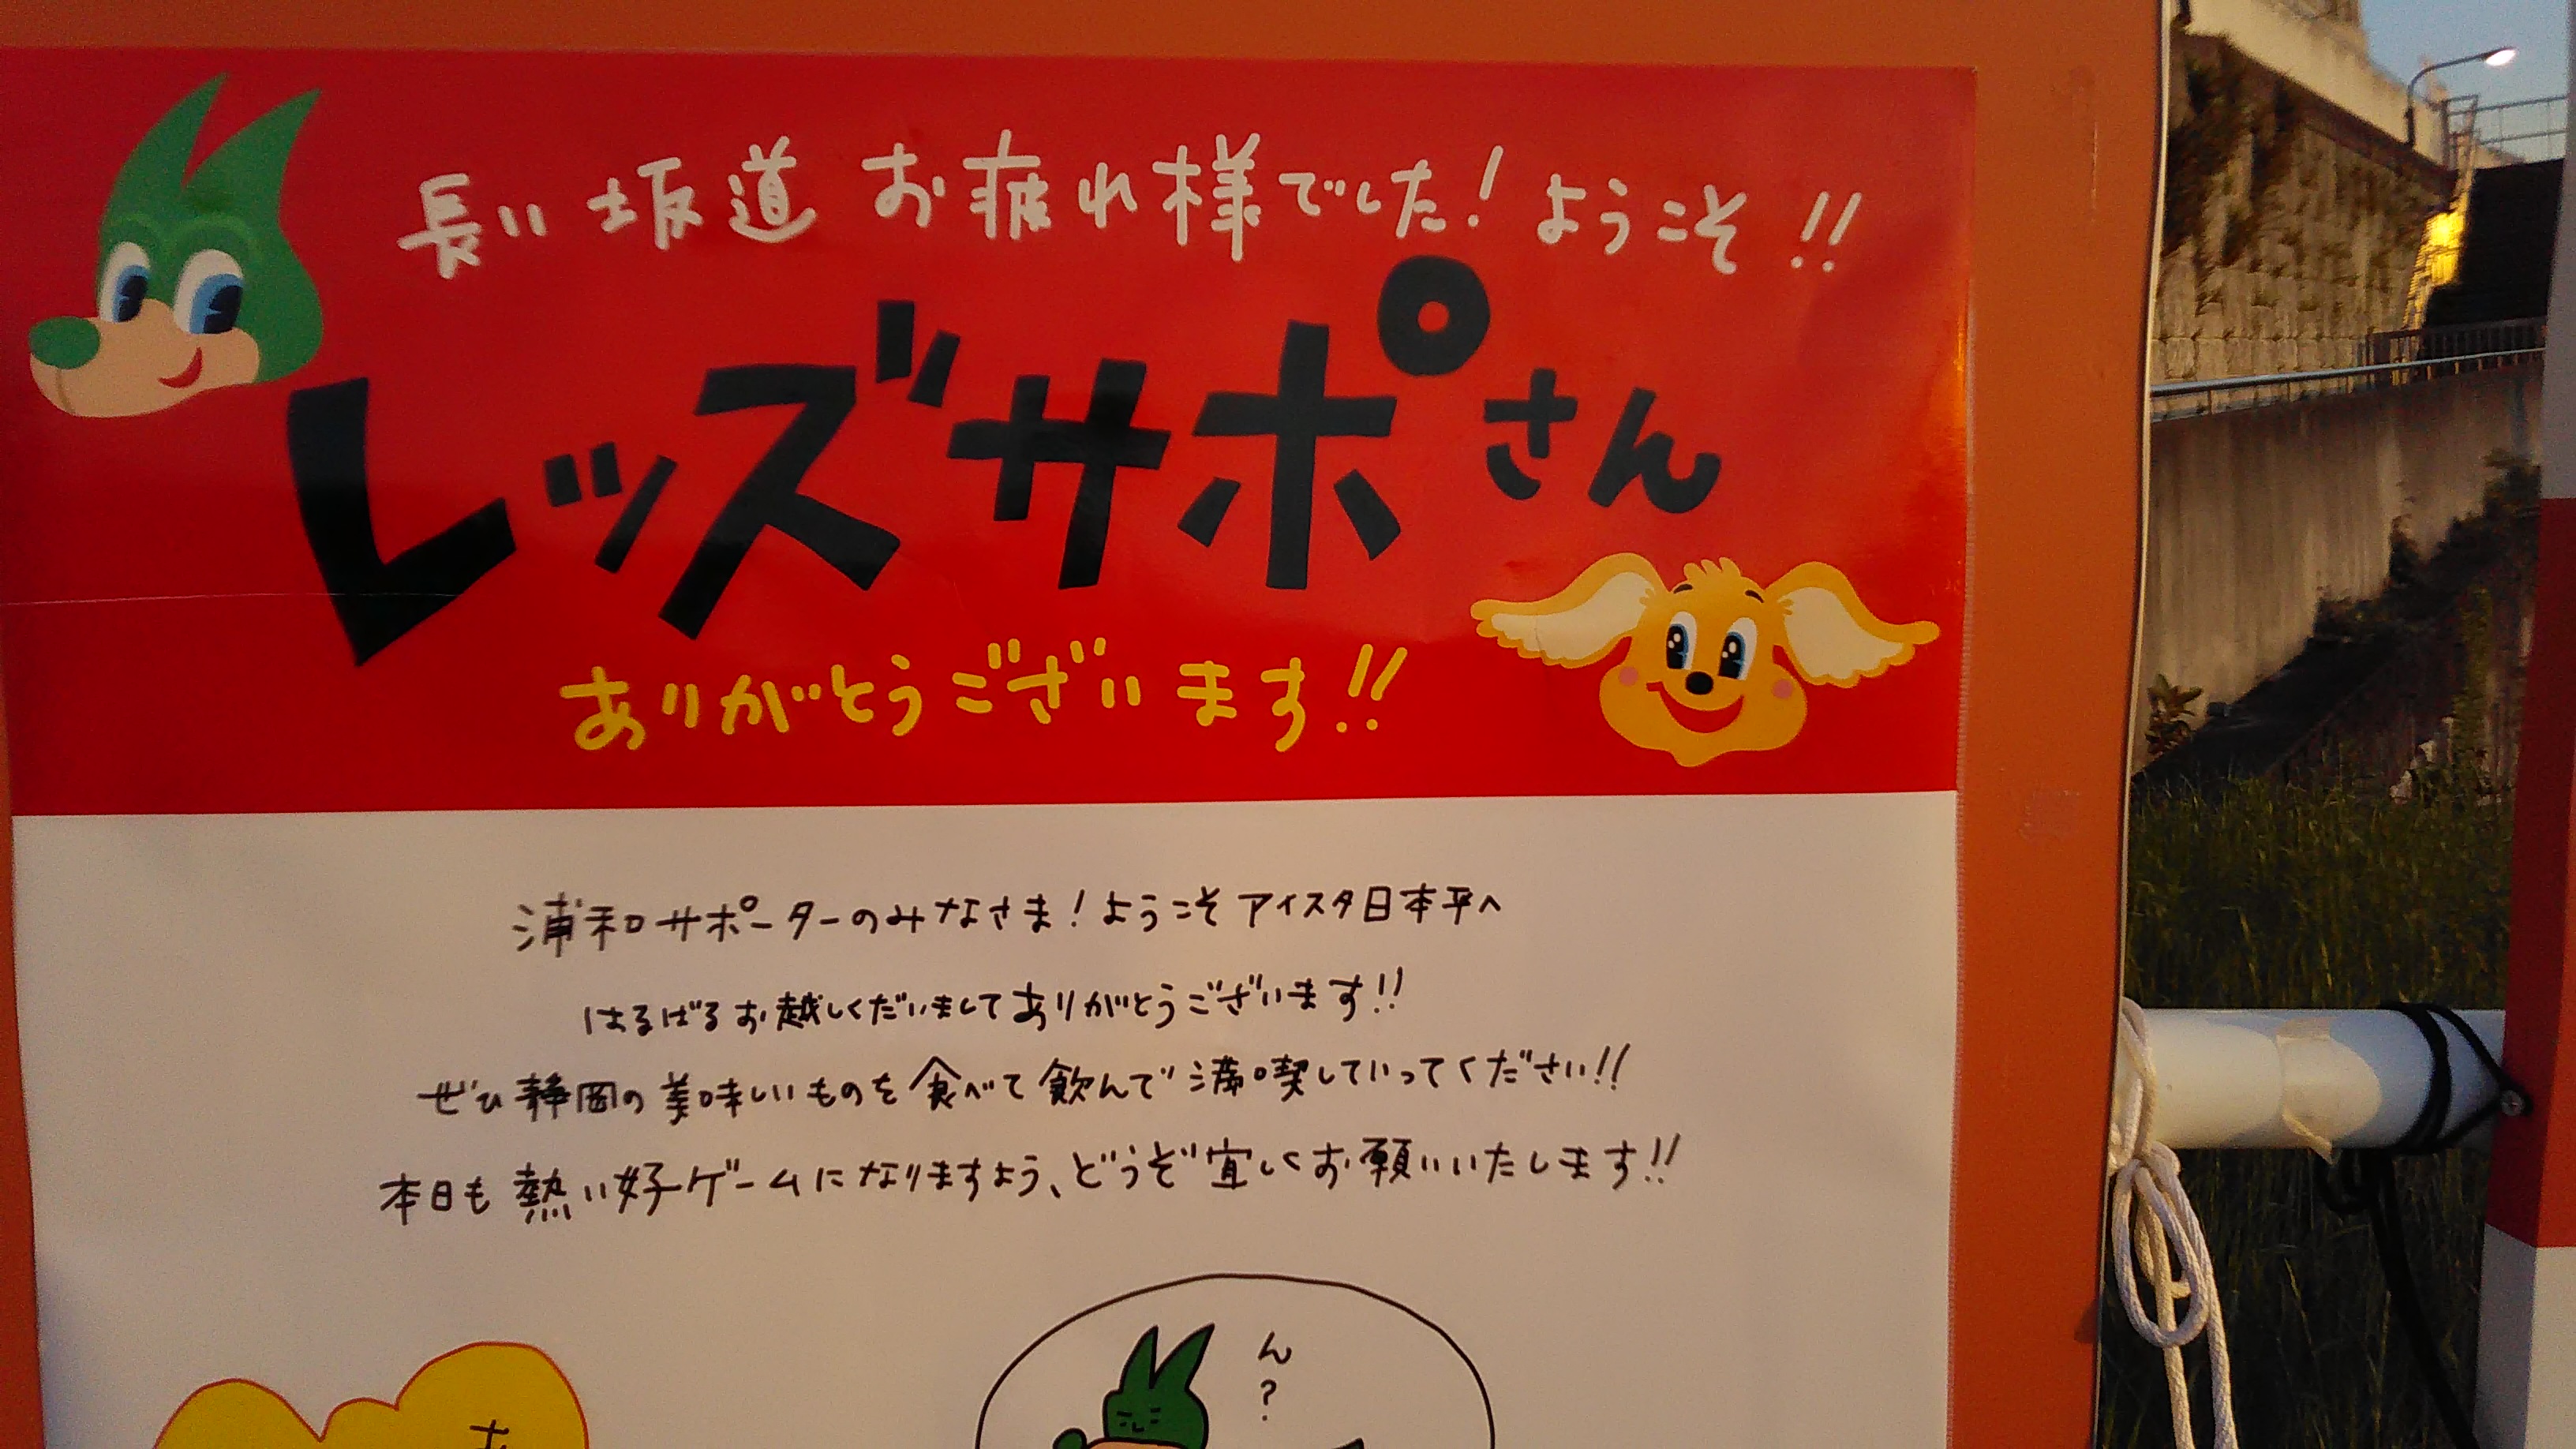 長い坂道 お疲れ様でした! ようこそ!!
レッズサポさん
ありがとうございます!!
浦和サポーターのみなさま!ようこそアイスタ日本平へ
はるばるお越しくだいましてありがとうございます!!
ぜひ静岡の美味しいものを食べて飲んで満喫していってください!!
本日も熱い好ゲームになりますよう、どうぞ宜しくお願いいたします!!
ん?